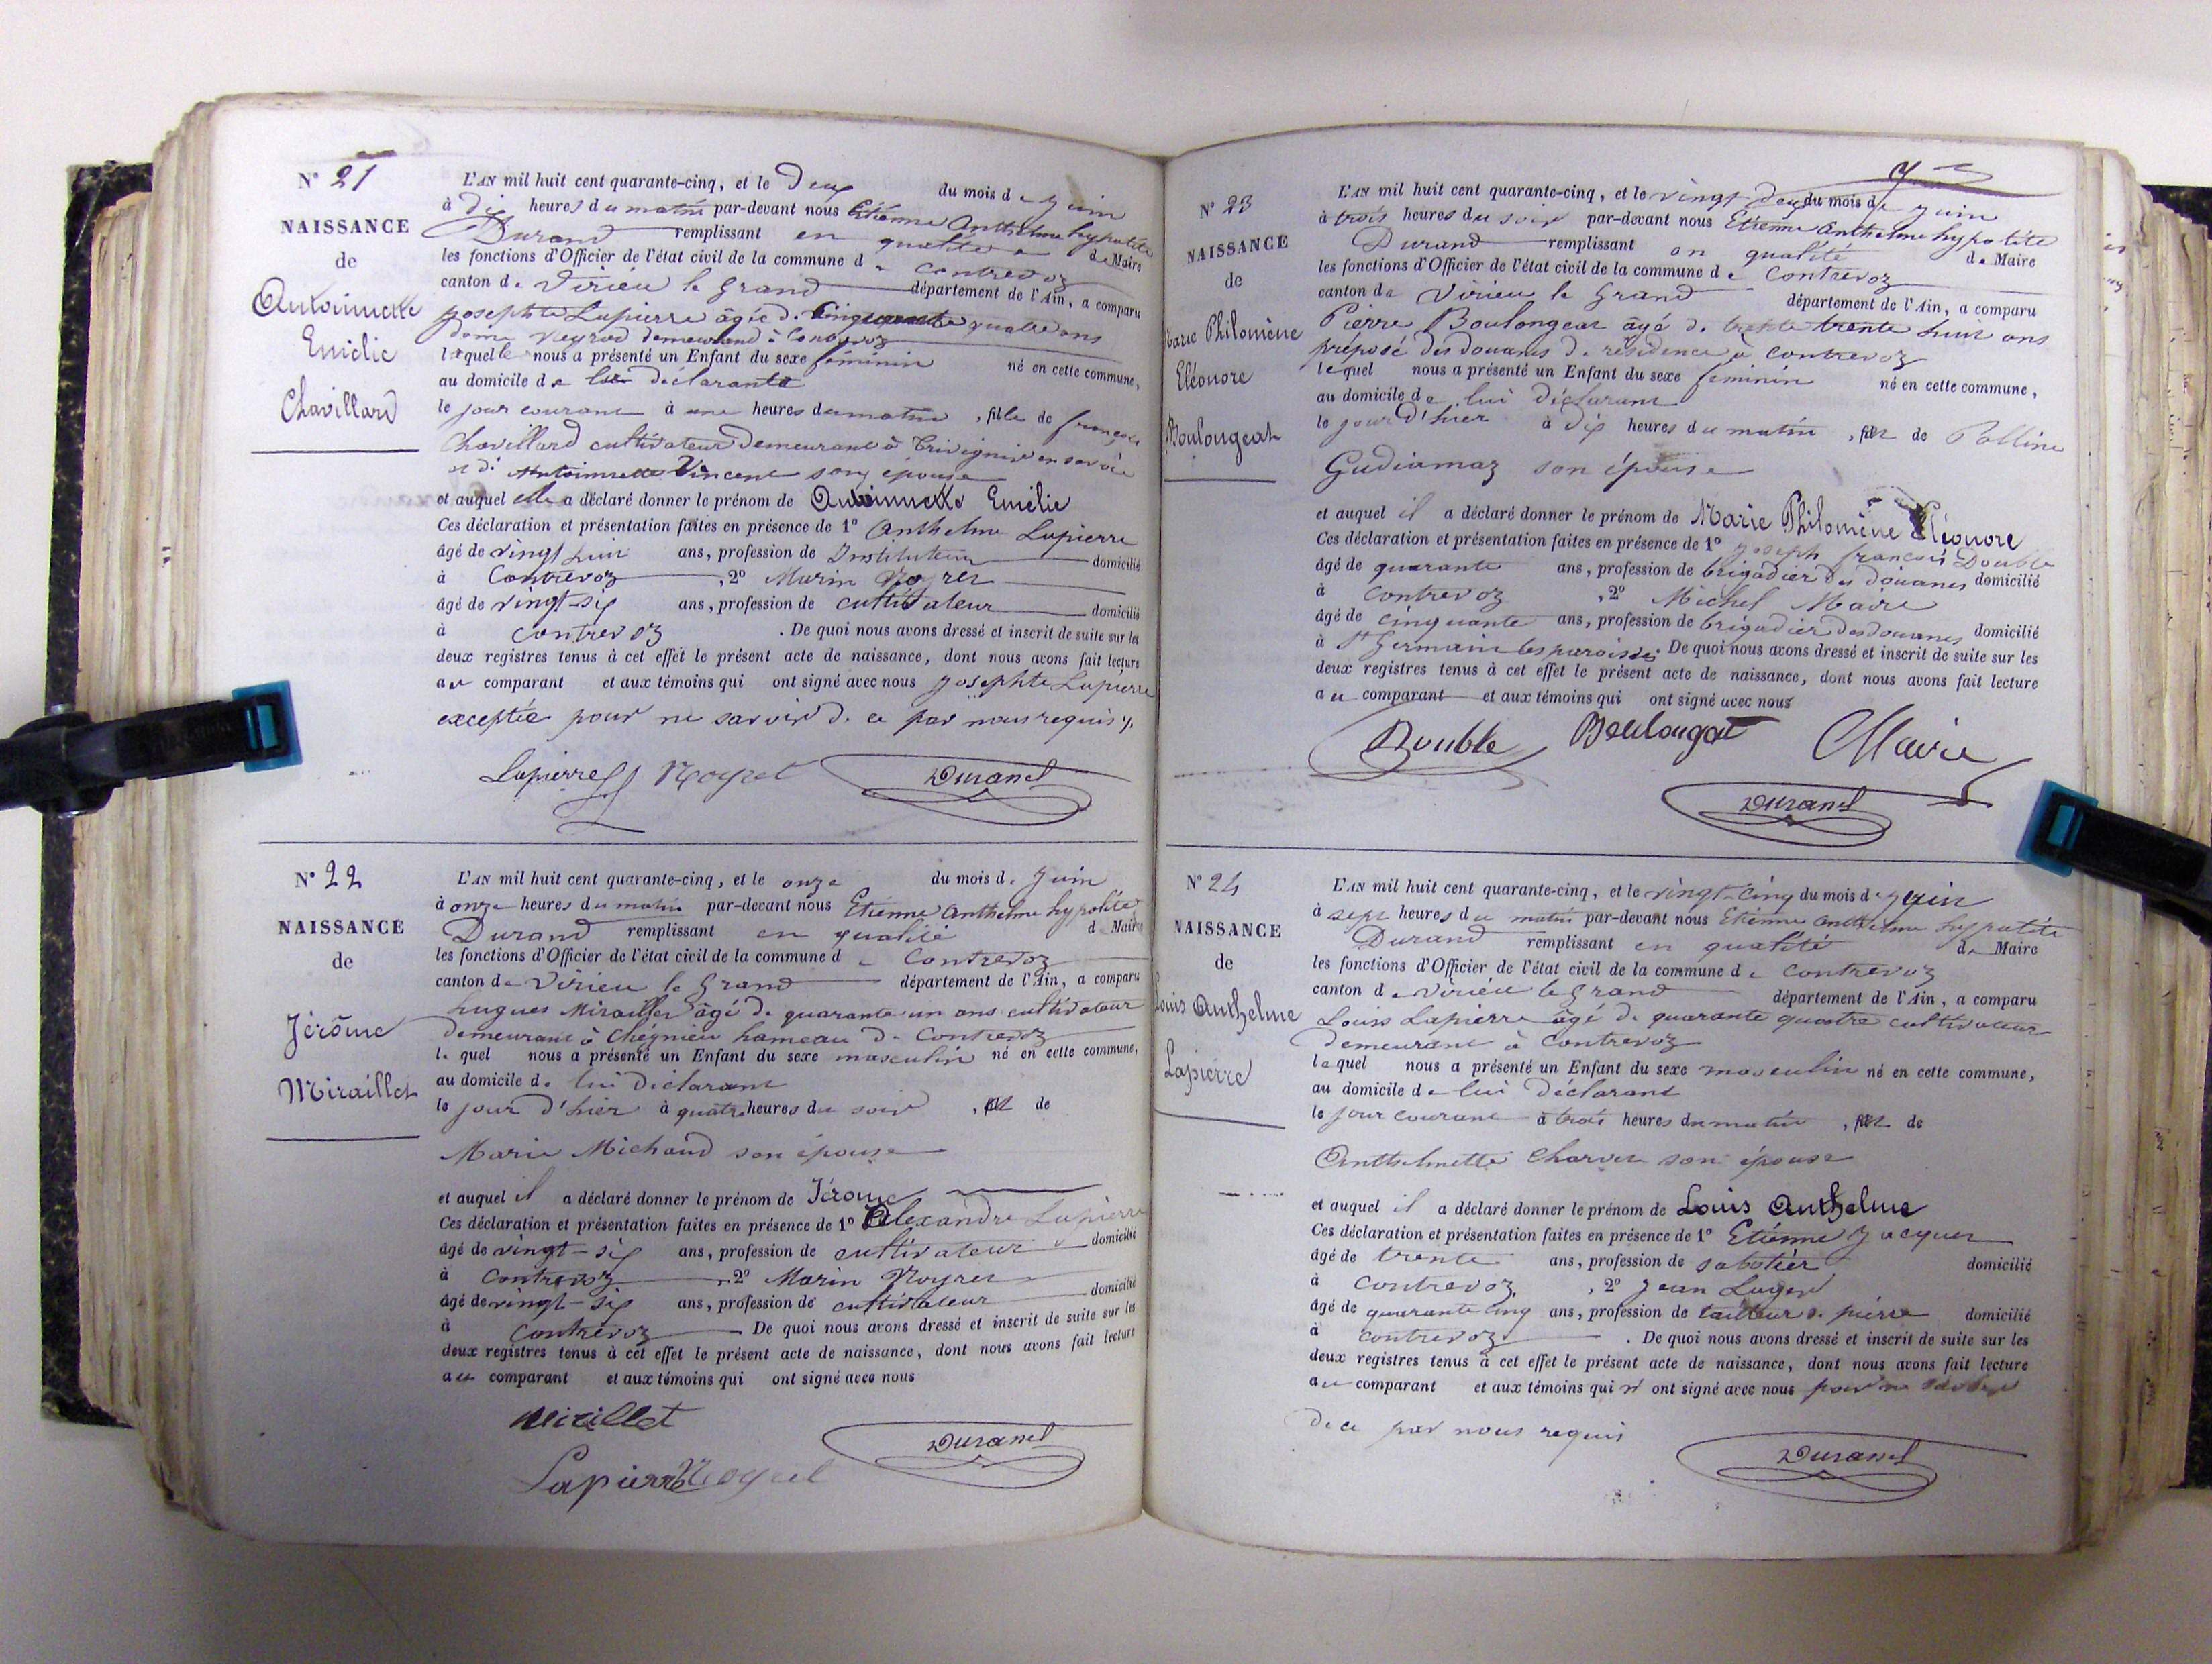 N° 21
NAISSANCE
de
Antoinette
Emélie
Chavillard
L'AN mil huit cent quarante-cinq, et le Deux du mois de Juin
à Dix heures du matin par-devant nous Etienne Anthelme hypolite
Durand remplissant en qualité de Maire
les fonctions d'Officier de l'état civil de la commune de Contrevoz
canton de Virieu le Grand département de l'Ain, a comparu
josephte Lapierre âgée de Cinquante quatre ans
demeurand à Contrevoz
laquelle nous a présenté un Enfant du sexe féminin né en cette commune,
au domicile de la déclarante
le jour courant à une heures du matin, fille de françois
Chavillard cultivateur demeurant à en savoie
et de Antoinette Vincent son épouse
et auquel elle a déclaré donner le prénom de Antoinette Emélie
Ces déclaration et présentation faites en présence de 1° Anthelme Lapierre
âgé de vingt huit ans, profession de Instituteur domicilié
à Contrevoz, 2° Marin Noyret
âgé de vingt-six ans, profession de cultivateur domicilié
à contrevoz. De quoi nous avons dressé et inscrit de suite sur les
deux registres tenus à cet effet le présent acte de naissance, dont nous avons fait lecture
au comparant et aux témoins qui ont signé avec nous josephte Lapierre
exceptée pour ne savoir de ce par nous requis
Lapierre Noyret Durand
N° 22
NAISSANCE
de
Jérôme
Miraillet
L'AN mil huit cent quarante-cinq, et le onze du mois de Juin
à onze heures du matin par-devant nous Etienne Anthelme hypolite
Durand remplissant en qualité de Maire
les fonctions d'Officier de l'état civil de la commune de Contrevoz
canton de Virieu le Grand département de l'Ain, a comparu
hugues Miraillet âgé de quarante un ans cultivateur
demeurant à Chégnieu hameau de Contrevoz
lequel nous a présenté un Enfant du sexe masculin né en cette commune,
au domicile de lui déclarant
le jour d'hier à quatre heures du soir, et de
Marie Michaud son épouse
et auquel il a déclaré donner le prénom de Jérôme
Ces déclaration et présentation faites en présence de 1° Alexandre Lapierre
âgé de vingt-six ans, profession de cultivateur domicilié
à Contrevoz, 2° Marin Noyret
âgé de vingt-six ans, profession de cultivateur domicilié
à Contrevoz De quoi nous avons dressé et inscrit de suite sur les
deux registres tenus à cet effet le présent acte de naissance, dont nous avons fait lecture
au comparant et aux témoins qui ont signé avec nous
Mirillet
Durand
Lapierre Noyret
N° 23
NAISSANCE
de
Marie Philomène
Eléonore
Boulongeat
L'AN mil huit cent quarante-cinq, et le vingt Deux du mois de juin
à trois heures du soir par-devant nous Etienne Anthelme hypolite
Durand remplissant en qualité de Maire
les fonctions d'Officier de l'état civil de la commune de Contrevoz
canton de Virieu le Grand département de l'Ain, a comparu
Pierre Boulongeat âgé de trente trente huit ans
préposé des douanes de résidence à contrevoz
lequel nous a présenté un Enfant du sexe féminin né en cette commune,
au domicile de lui déclarant
le jour d'hier à dix heures du matin, et de Polline
Gudiamaz son épouse
et auquel il a déclaré donner le prénom de Marie Philomène Eléonore
Ces déclaration et présentation faites en présence de 1° joseph françois Double
âgé de quarante ans, profession de brigadier des douanes domicilié
à contrevoz, 2° Michel Maire
âgé de cinquante ans, profession de brigadier des douanes domicilié
à St Germain les paroisses De quoi nous avons dressé et inscrit de suite sur les
deux registres tenus à cet effet le présent acte de naissance, dont nous avons fait lecture
au comparant et aux témoins qui ont signé avec nous
Double Boulongat Maire
Durand
N° 24
NAISSANCE
de
Louis Anthelme
Lapierre
L'AN mil huit cent quarante-cinq, et le vingt-cinq du mois de juin
à sept heures du matin par-devant nous Etienne Anthelme hyppolite
Durand remplissant en qualité de Maire
les fonctions d'Officier de l'état civil de la commune de Contrevoz
canton de Virieu le Grand département de l'Ain, a comparu
Louis Lapierre âgé de quarante quatre cultivateur
demeurant à Contrevoz
lequel nous a présenté un Enfant du sexe masculin né en cette commune,
au domicile de lui déclarant
le jour courant à trois heures du matin, et de
Anthelmette Charvet son épouse
et auquel il a déclaré donner le prénom de Louis Anthelme
Ces déclaration et présentation faites en présence de 1° Etienne Jacquet
âgé de trente ans, profession de sabotier domicilié
à Contrevoz, 2° Jean Luger
âgé de quarante cinq ans, profession de tailleur de pierre domicilié
à contrevoz. De quoi nous avons dressé et inscrit de suite sur les
deux registres tenus à cet effet le présent acte de naissance, dont nous avons fait lecture
au comparant et aux témoins qui n'ont signé avec nous pour ne savoir
de ce par nous requis
Durand